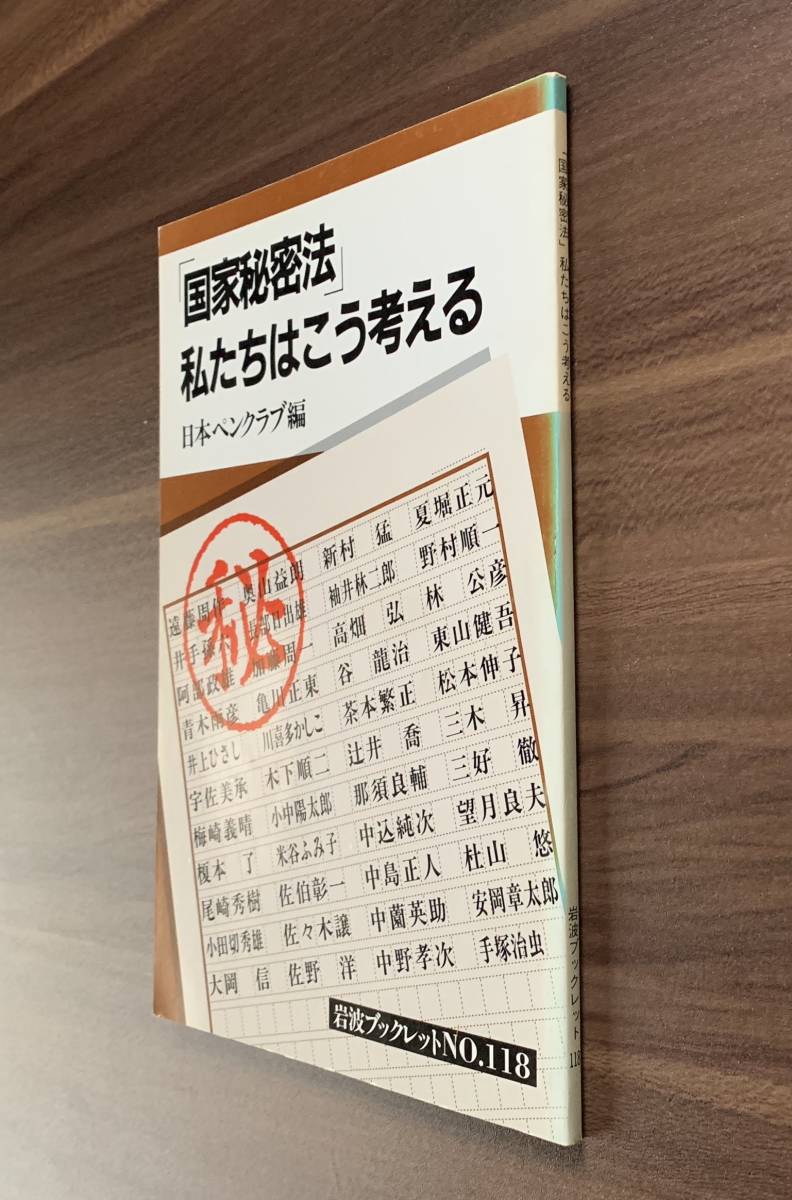 「国家秘密法」
私たちはこう考える
日本ペンクラブ編
秘
遠藤周作 奥山益朗 新村 猛 夏堀正元
井手孫六 長部日出雄 袖井林二郎 野村順一
阿部政雄 加藤周一 高畑 弘 林 公彦
青木雨彦 亀川正東 谷 龍治 東山健吾
井上ひさし 川喜多かしこ 茶本繁正 松本伸子
宇佐美承 木下順二 辻井 喬 三木 昇
梅崎義晴 小中陽太郎 那須良輔 三好 徹
榎本 了 米谷ふみ子 中込純次 望月良夫
尾崎秀樹 佐伯彰一 中島正人 杜山 悠
小田切秀雄 佐々木譲 中薗英助 安岡章太郎
大岡 信 佐野 洋 中野孝次 手塚治虫
岩波ブックレットNO.118
「国家秘密法」 私たちはこう考える
岩波ブックレット 118